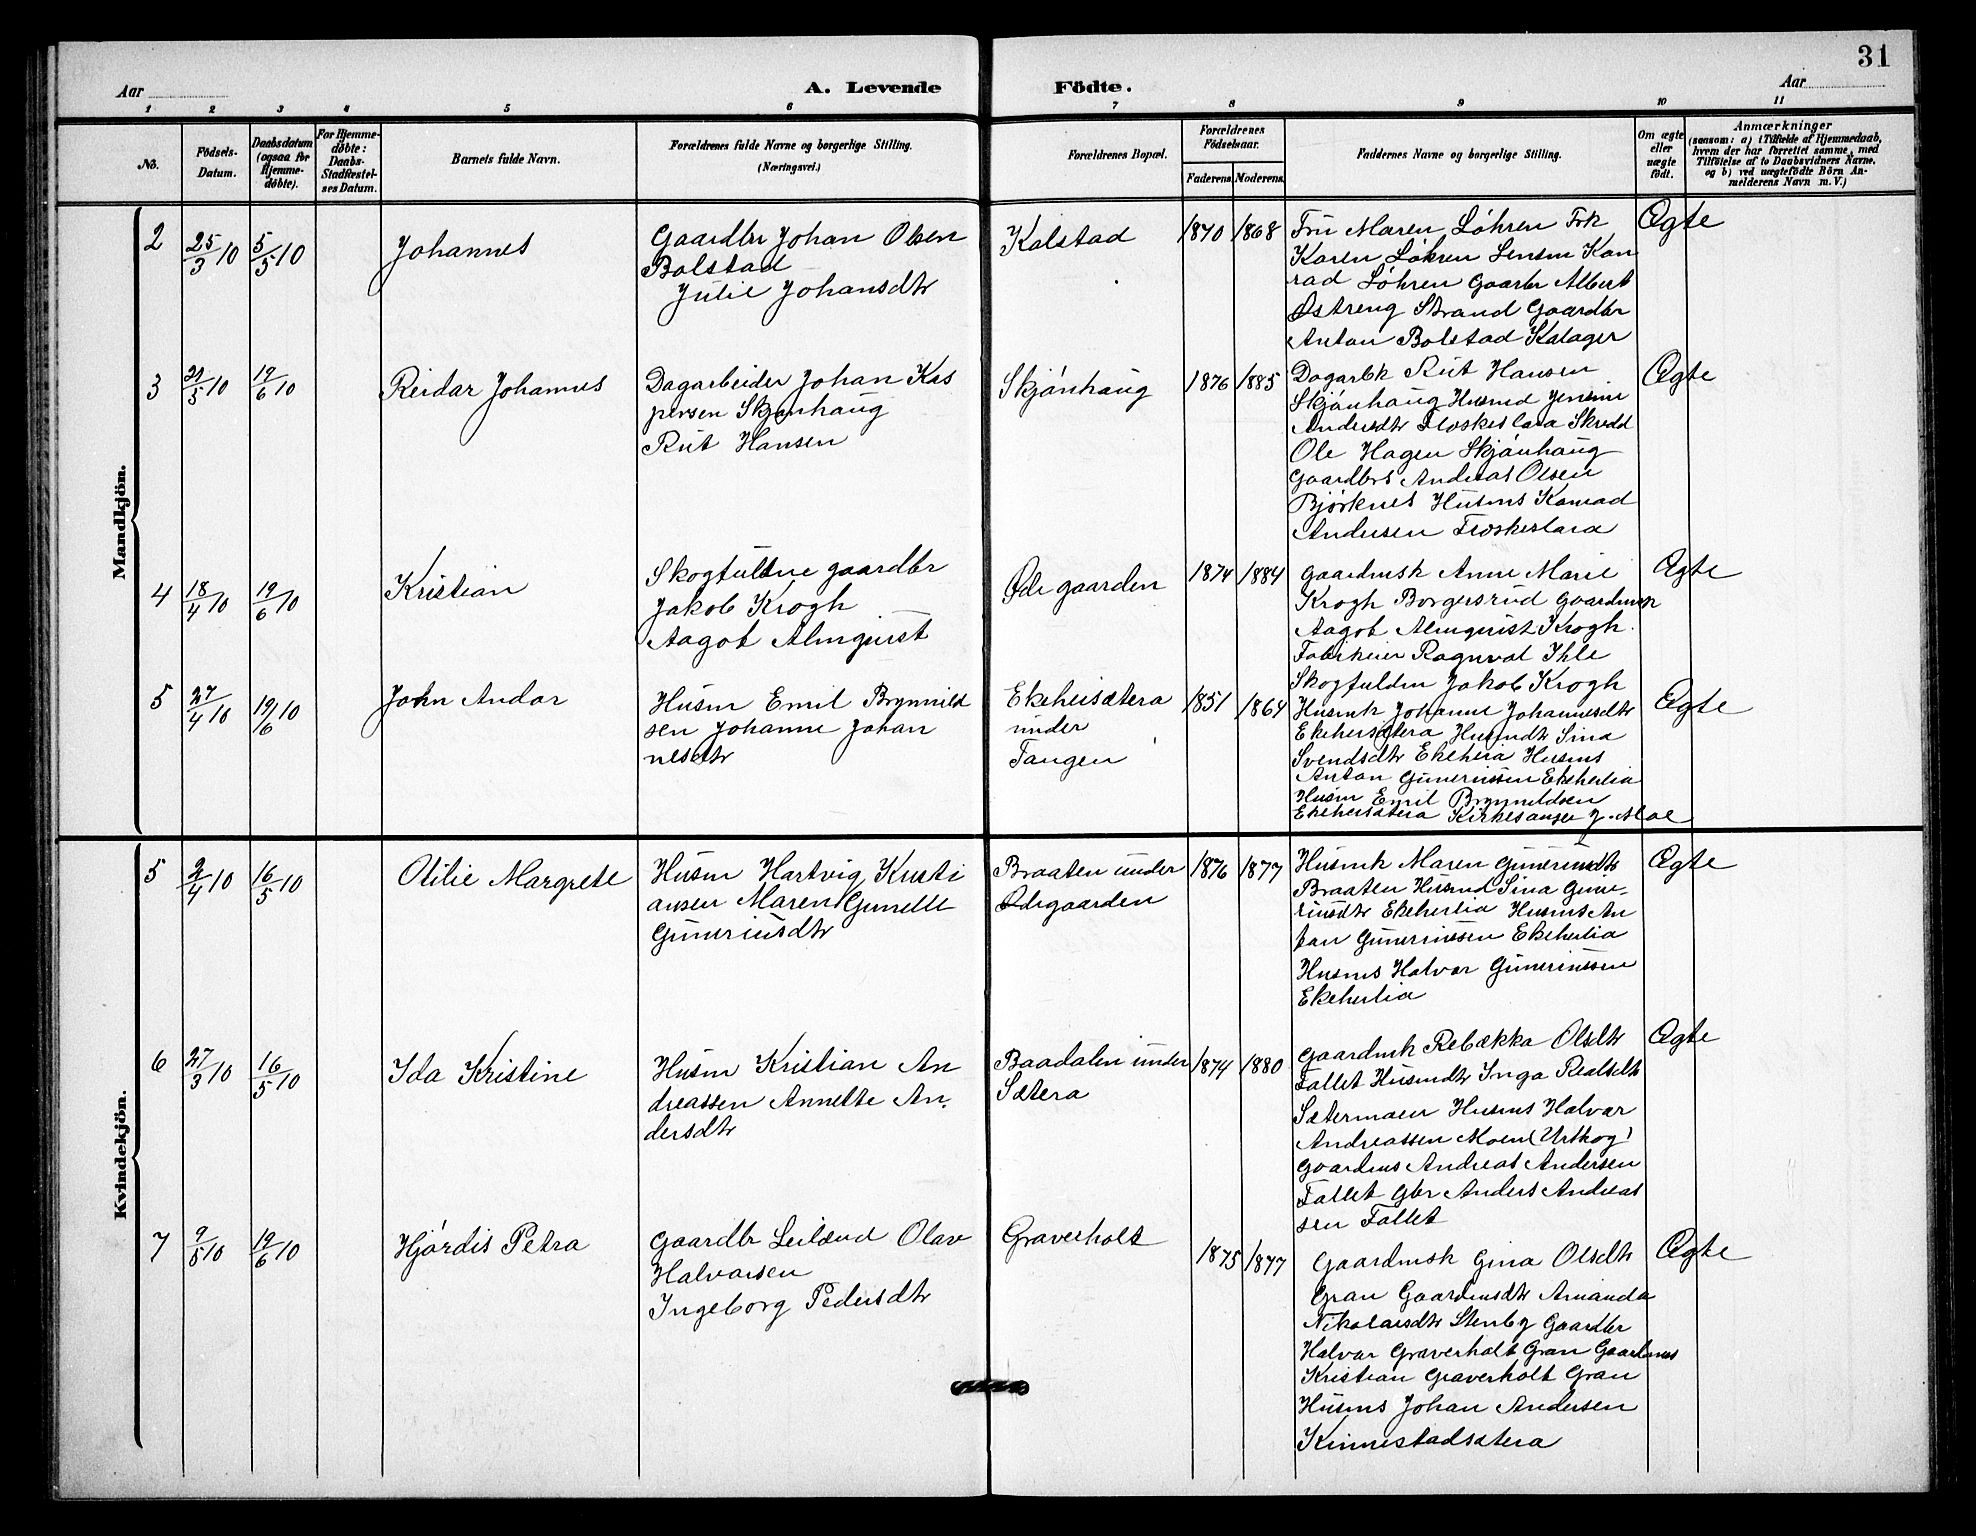 31
Aar
A. Levende Födte.
Aar
1 2 3 4 5 6 7 8 9 10 11
No.
Födsels-
Datum.
Daabsdatum
(ogsaa for
Hjemme-
döbte).
For Hjemme-
döbte:
Daabs-
Stadfæstel-
ses Datum.
Barnets fulde Navn.
Forældrenes fulde Navne og borgerlige Stilling.
(Næringsvei.)
Forældrenes Bopæl.
Forældrenes
Födselsaar.
Faderens. Moderens.
Faddernes Navne og borgerlige Stilling.
Om ægte
eller
uægte
födt.
Anmærkninger
(saasom: a) i Tilfælde af Hjemmedaab,
hvem der har forrettet samme, med
Tilföielse af to Daabsvidners Navne.
og b) ved uægtefödte Börn An-
melderens Navn m. V.)
Mandkjön.
2
25/3 10
5/5 10
Johannes
Gaardbr Johan Olsen
Bolstad
Julie Johansdtr
Kolstad
1870 1868
Fru Maren Løhren Frk
Karen Løhren Lensm Kon
rad Løhren Gaarbr Albert
Østreng Strand Gaardbr
Anton Bolstad Kalager
Ægte
3
21/5 10
19/6 10
Reidar Johannes
Dagarbeider Johan Kas
persen Skjønhaug
Rut Hansen
Skjønhaug
1876 1885
Dagarbk Rut Hansen
Skjønhaug Husmd Jensine
Andersdtr Floskeslara Skredd
Ole Hagen Skjønhaug
Gaardbrs Andreas Olsen
Bjørknes Husms Konrad
Andersen Froskeslara
Ægte
4
18/4 10
19/6 10
Kristian
Skogfuldm gaardbr
Jakob Krogh
Aagot Almquist
Ødegaarden
1874 1884
Gaardmsk Anne Marie
Krogh Borgersrud Gaardmsk
Aagot Almquist Krogh.
Fabrikeier Ragnval Ihle
Skogfuldm Jakob Krogh
Ægte
5
27/4 10
19/6 10
John Andor
Husm Emil Brynnild
sen Johanne Johan
nesdtr
Ekeheisætera
under
Tangen
1851 1864
Husmk Johanne Johannesdtr
Ekeheisætera Husmdtr Sina
Svendsdtr Ekeheia Husms
Anton Guneriussen Ekeheilia
Husm Emil Brynnildsen
Ekeheisætera Kirkesanger J. Moe
Ægte
Kvindekjön.
5
2/4 10
16/5 10
Otilie Margrete
Husm Hartvig Kristi
ansen Maren Gunelle
Guneriusdtr
Braaten under
Ødegaarden
1876 1877
Husmk Maren Guneriusdtr
Braaten Husmd Sina Gune-
riusdtr Ekeheilia Husms An
ton Gunerinssen Ekeheilia
Husms Halvor Guneriussen
Ekeheilia
Ægte
6
27/3 10
16/5 10
Ida Kristine
Husm Kristian An
dreassen Annette An.
dersdtr
Baadalen under
Sætera
1874 1880
Gaardmsk Rebækka Olsdtr
Fallet Husmdtr Inga Realsdtr
Sætermoen Husms Halvar
Andreassen Moen (Urskog)
Gaardms Andreas Andersen
Fallet Gbr Anders Andreas
sen Fallet
Ægte
7
9/5 10
19/6 10
Hjørdis Petra
Gaardbr Leilænd Olav
Halvorsen
Ingeborg Pedersdtr
Graverholt
1875 1877
Gaardmsk Gina Olsdtr
Gran Gaardmsdtr Amanda
Nikolaisdtr Stenby Gaardbr
Halvor Graverholt Gran Gaardms
Kristian Graverholt Gran
Husms Johan Andersen
Kinnestadsætera
Ægte